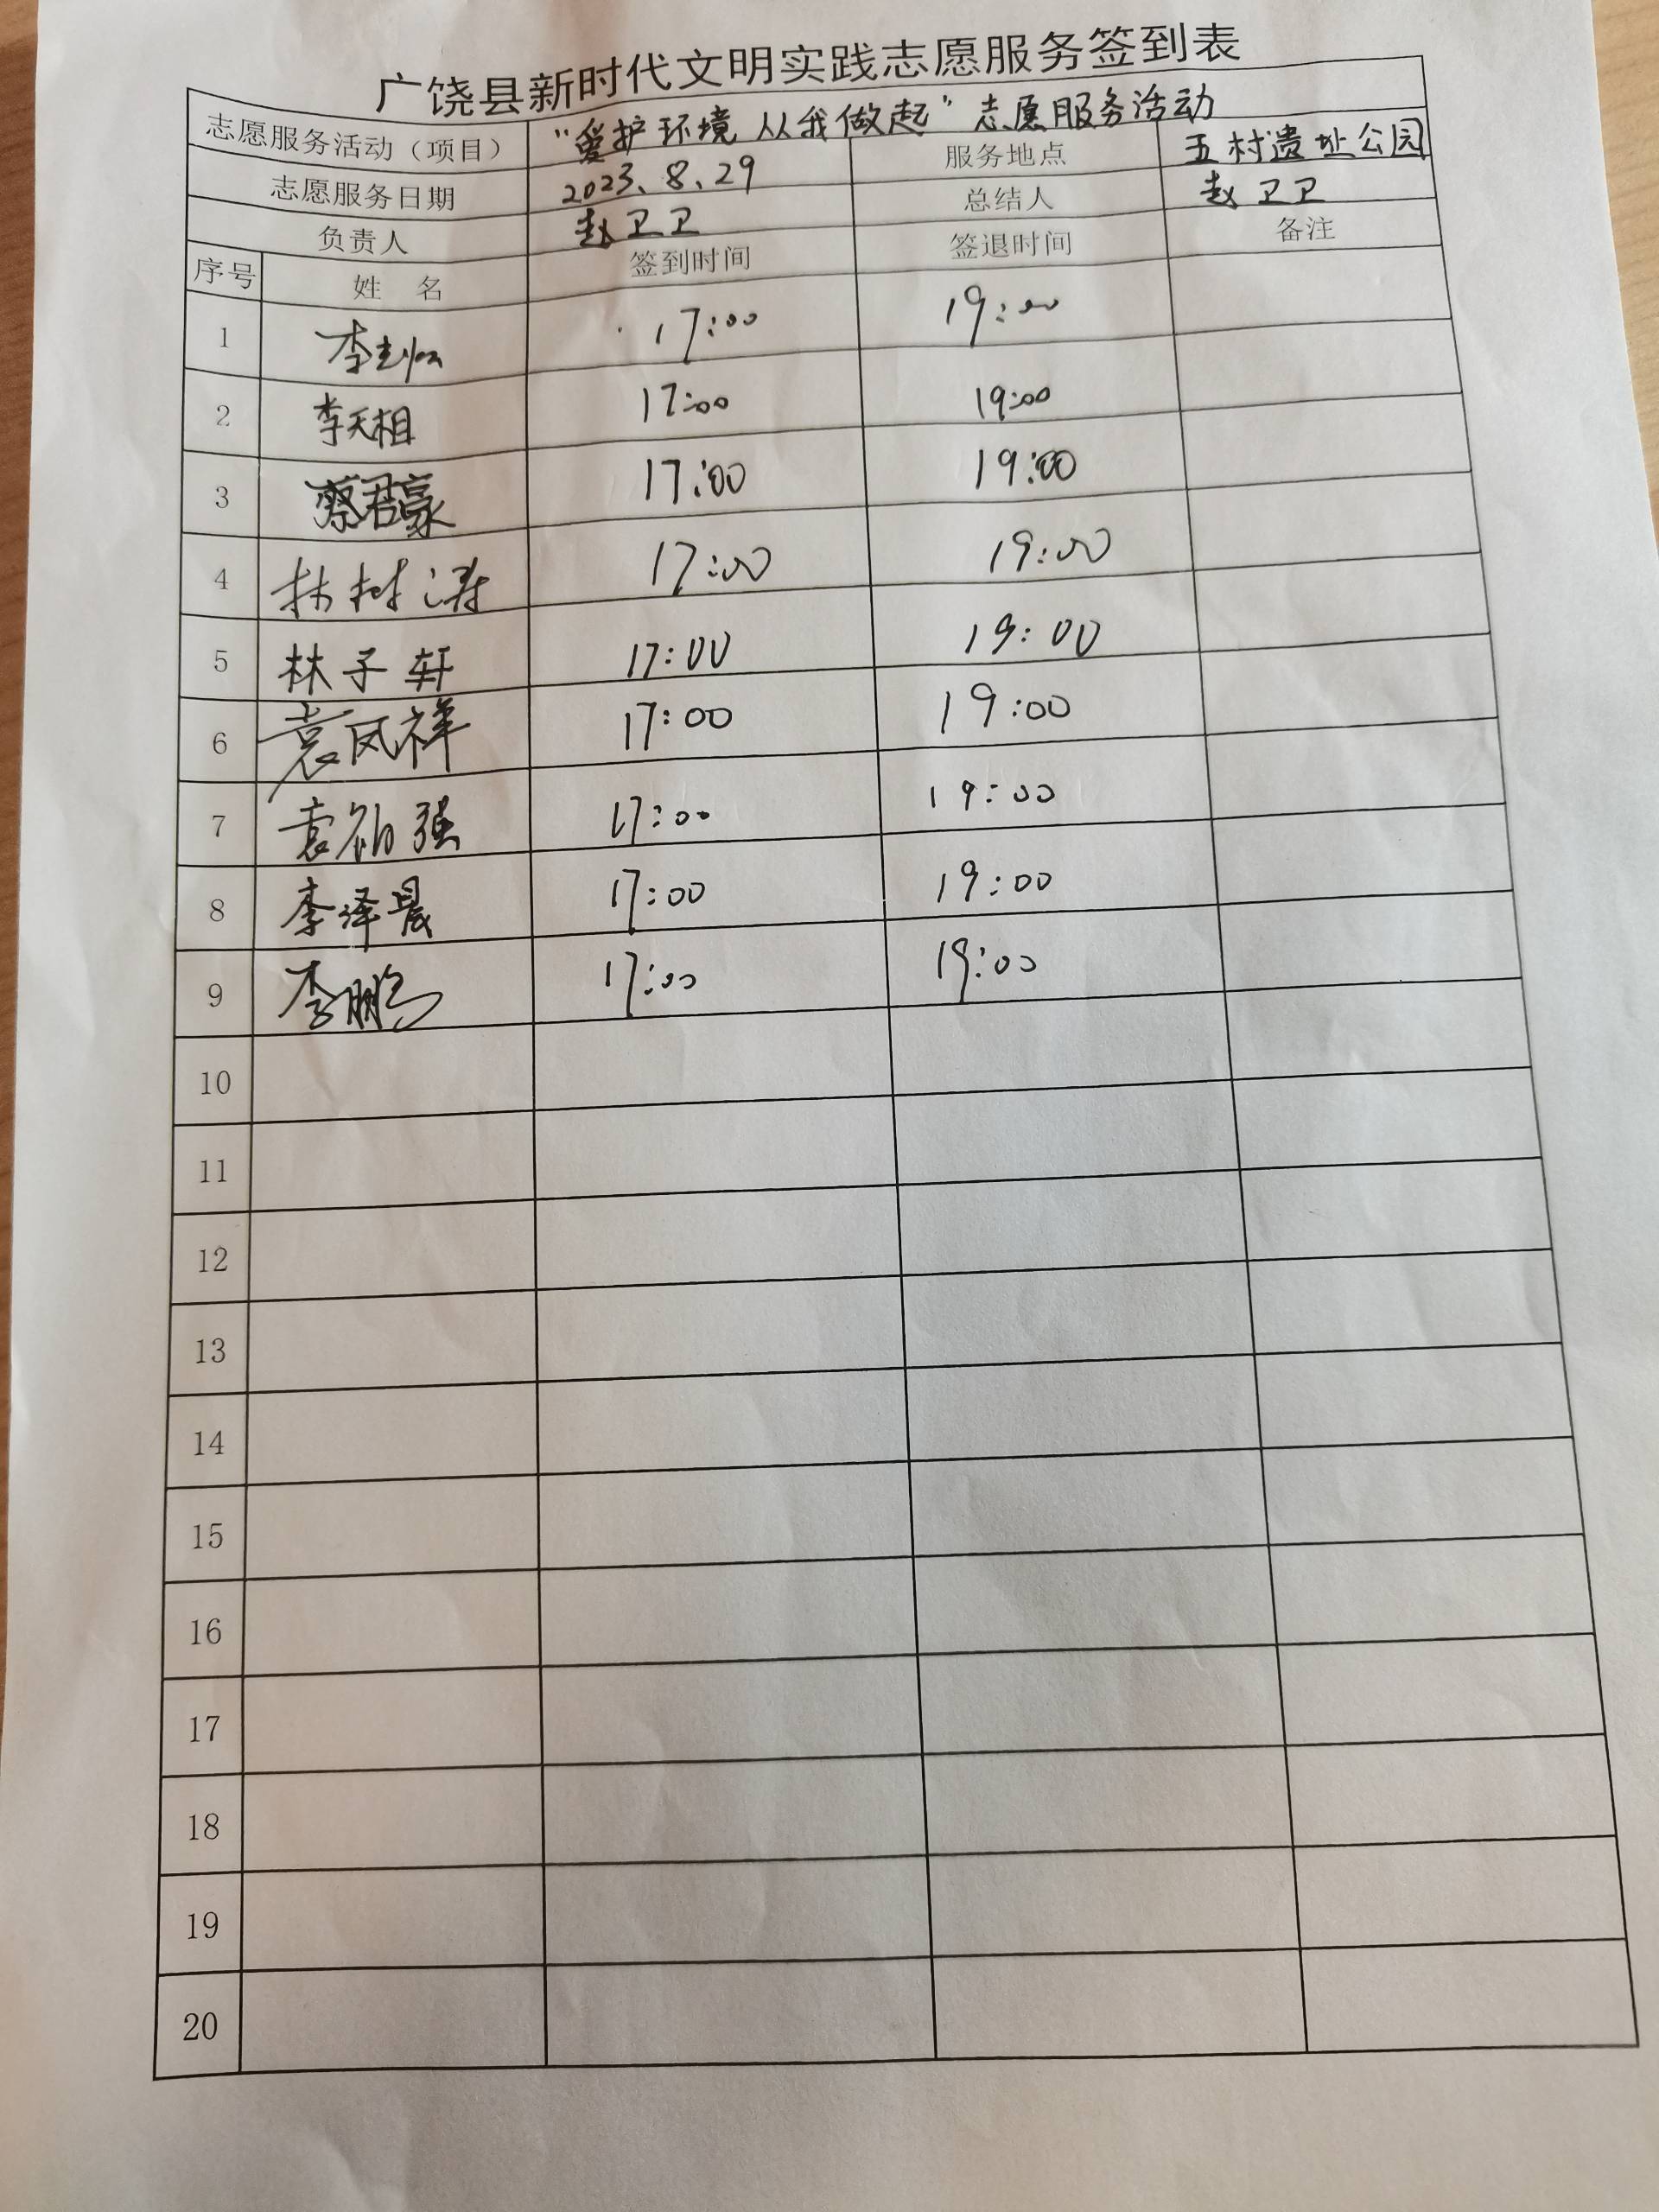 广饶县新时代文明实践志愿服务签到表
志愿服务活动（项目） “爱护环境 从我做起”志愿服务活动
志愿服务日期 2023、8、29 服务地点 五村遗址公园
负责人 赵卫卫 总结人 赵卫卫
序号 姓 名 签到时间 签退时间 备注
1 李 17:00 19:00
2 李天相 17:00 19:00
3 蔡君豪 17:00 19:00
4 林树涛 17:00 19:00
5 林子轩 17:00 19:00
6 袁凤祥 17:00 19:00
7 袁 强 17:00 19:00
8 李泽晨 17:00 19:00
9 李鹏 17:00 19:00
10
11
12
13
14
15
16
17
18
19
20